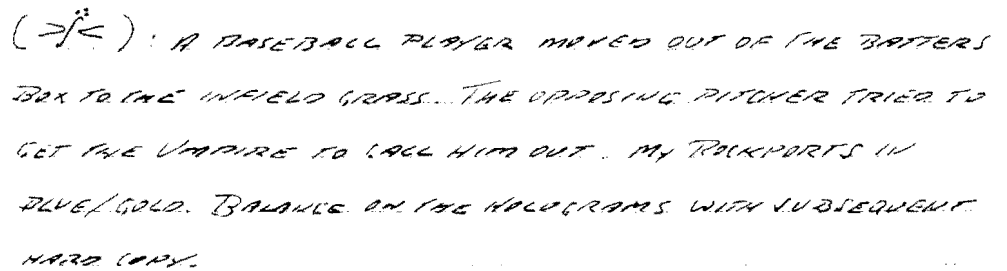 (>ʃ<): A BASEBALL PLAYER MOVED OUT OF THE BATTERS
BOX TO THE INFIELD GRASS. THE OPPOSING PITCHER TRIED TO
GET THE UMPIRE TO CALL HIM OUT. MY ROCKPORTS IN
BLUE/GOLD. BALANCE ON THE HOLOGRAMS WITH SUBSEQUENT
HARD COPY.